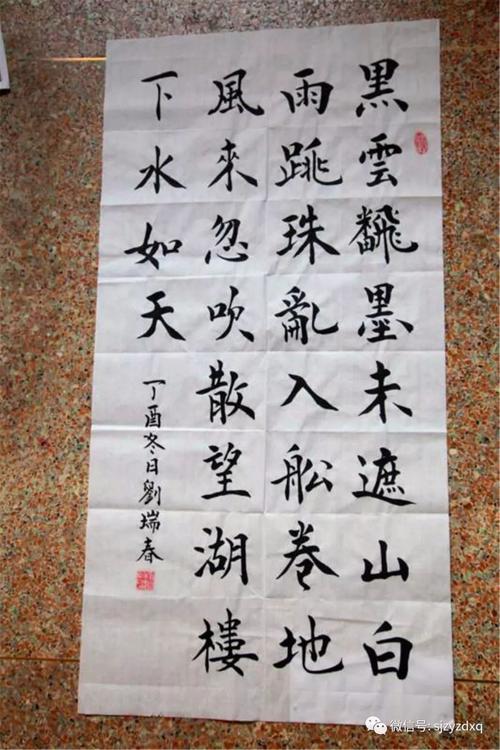 黑雲飜墨未遮山白
雨跳珠亂入船卷地
風來忽吹散望湖樓
下水如天
丁酉冬日劉瑞春
微信号: sjzyzdxq